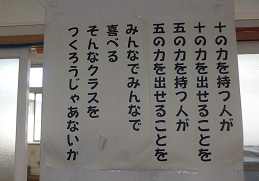 十の力を持つ人が
十の力を出せることを
五の力を持つ人が
五の力を出せることを
みんなでみんなで
喜べる
そんなクラスを
つくろうじゃあないか